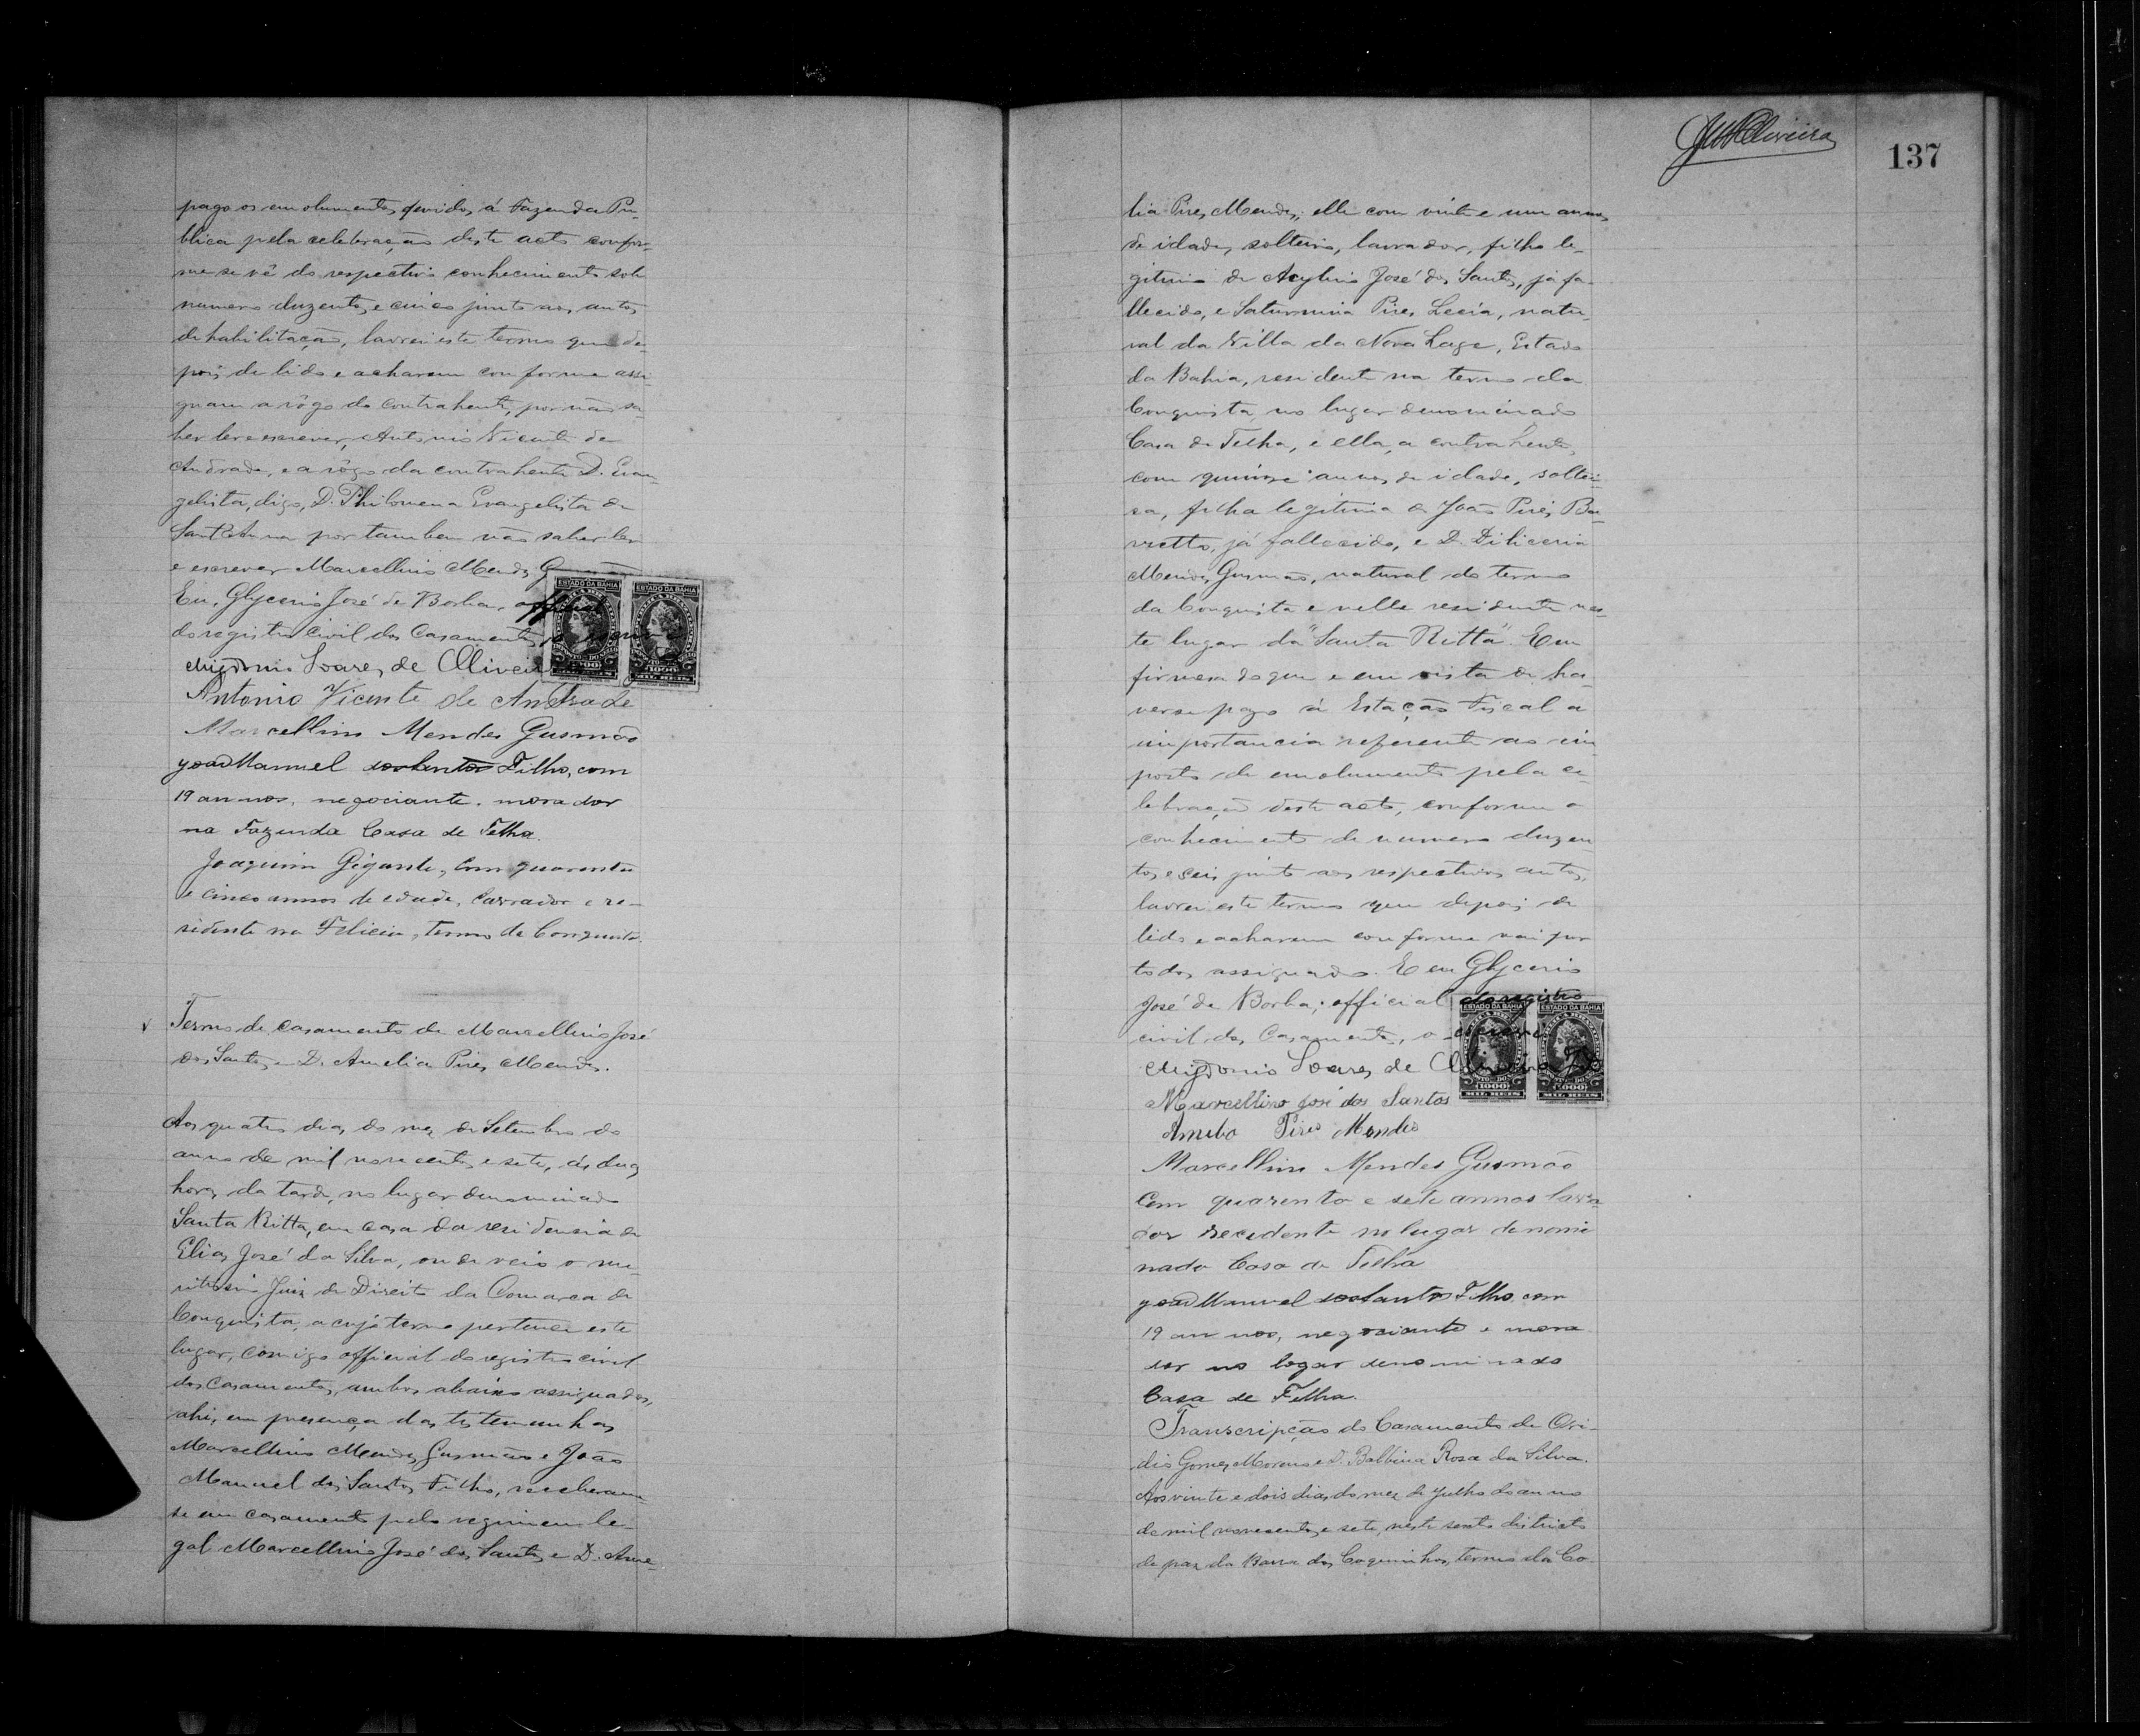 pago os emolumentos devidos á Fazenda Pu-
blica pela celebração deste acto confor-
me se vê do respectivo conhecimento sob
numero duzentos e cinco junto aos autos
de habilitação, lavrei este termo que de-
pois de lido e acharem conforme assi-
gnam a rôgo do contrahente, por não sa-
ber ler e escrever, Antonio Vicente de
Andrade, e a rôgo da contrahente D. Evan-
gelista, digo, D. Philomena Evangelista de
Sant'Anna por tambem não saber ler
e escrever Marcellino Mendes Gusmão
Eu, Glycerio José de Borba, official
do registro civil dos Casamentos, o escrevi
Migdonio Soares de Oliveira
Antonio Vicente de Andrade
Marcellino Mendes Gusmão
João Manuel dos Santos Filho, com
19 annos, negociante, morador
na Fazenda Casa de Telha.
Joaquim Gigante, com quarenta
e cinco annos de edade, lavrador e re-
sidente na Felicia, termo de Conquista.
Termo de casamento de Marcellino José
dos Santos e D. Amelia Pires Mendes.
Aos quatro dias do mez de Setembro do
anno de mil novecentos e sete, ás duas
horas da tarde, no lugar denominado
Santa Ritta, em casa da residencia de
Elias José da Silva, onde veio o me-
ritissimo Juiz de Direito da Comarca de
Conquista, a cujo termo pertence este
lugar, comigo official do registro civil
dos Casamentos, ambos abaixo assignados,
ahi, em presença das testemunhas
Marcellino Mendes Gusmão e João
Manuel dos Santos Filho, receberam-
se em casamento pelo regimem le-
gal Marcellino José dos Santos e D. Ame-
JM Oliveira
137
lia Pires Mendes; elle com vinte e um annos
de idade, solteiro, lavrador, filho le-
gitimo de José dos Santos, já fa-
llecido, e Saturnina Pires, natu-
ral da Villa da Nova Lage, Estado
da Bahia, residente no termo da
Conquista, no lugar denominado
Casa de Telha, e ella, a contrahente,
com quinze annos de idade, soltei-
ra, filha legitima de João Pires Ba-
rretto, já fallecido, e D.
Mendes Gusmão, natural do termo
da Conquista e nelle residente nes-
te lugar da "Santa Ritta". Em
firmesa do que e em vista de ha-
ver se pago á Estação Fiscal a
importancia referente ao im-
posto de emolumento pela ce-
lebração deste acto, conforme o
conhecimento de numero duzen-
tos e seis junto aos respectivos autos,
lavrei este termo que depois de
lido e acharem conforme vai por
todos assignado. E eu Glycerio
José de Borba, official do registro
civil dos Casamentos, o escrevi
Migdonio Soares de Oliveira
Marcellino José dos Santos
Amelia Pires Mendes
Marcellino Mendes Gusmão
Com quarenta e sete annos lavra-
dor recedente no lugar denomi
nado Casa de Telha
João Manuel dos Santos Filho, com
19 annos, negociante e mora
dor no logar denominado
Casa de Telha.
Transcripção do Casamento de Ovi-
dio Gomes Moreno e D. Balbina Rosa da Silva.
Aos vinte e dois dias do mez de Julho do anno
de mil novecentos e sete, neste sexto districto
de paz da Barra dos Coqueinhos, termo da Co-
ESTADO DA BAHIA
ESTADO DA BAHIA
(1000)
MIL REIS
MIL REIS
ESTADO DA BAHIA
ESTADO DA BAHIA
(1000)
MIL REIS
MIL REIS